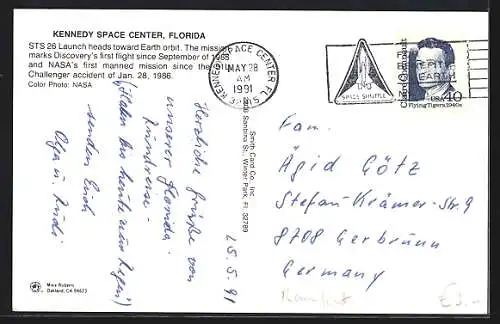 KENNEDY SPACE CENTER, FLORIDA
STS 26 Launch heads toward Earth orbit. The mission
marks Discovery's first flight since September of 1988
and NASA's first manned mission since the
Challenger accident of Jan. 28, 1986.
Color Photo: NASA
KENNEDY SPACE CENTER FL
MAY 28
AM
1991
32815
SPACE SHUTTLE
FOR
BENEFIT
EARTH
Claire Chennault
USA 40
Flying Tigers, 1940s
Smith Card Co. Inc.
Winter Park, FL 32789
25.5.91
Herzliche Grüße von
unserer Florida-
Rundreise
(Haben bis heute nur Regen)
senden Euch
Olga u. Rudi
Fam.
Ägid Götz
Stefan-Krämer-Str. 9
8708 Gerbrunn
Germany
Mike Roberts
Oakland, CA 94623